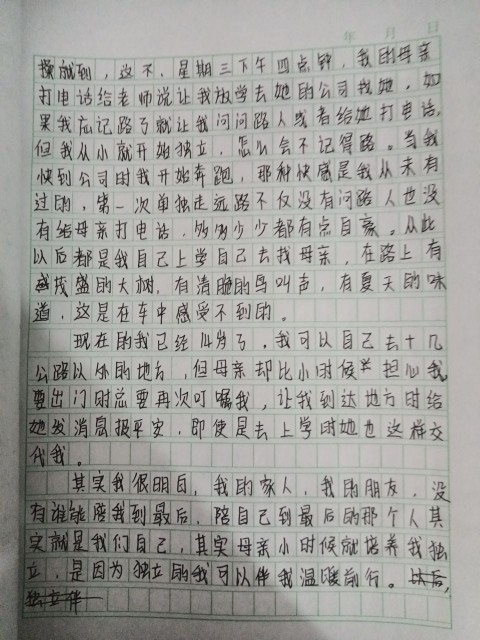 年 月 日
操就到，这不，星期三下午四点钟，我的母亲
打电话给老师说让我放学去她的公司找她，如
果我忘记路了就让我问问路人或者给她打电话。
但我从小就开始独立，怎么会不记得路。当我
快到公司时我开始奔跑，那种快感是我从未有
过的，第一次单独走远路不仅没有问路人也没
有给母亲打电话，多多少少都有点自豪。从此
以后都是我自己上学自己去找母亲，在路上有
茂盛的大树，有清脆的鸟叫声，有夏天的味
道，这是在车中感受不到的。
现在的我已经14岁了，我可以自己去十几
公路以外的地方，但母亲却比小时候担心我
要出门时总要再次叮嘱我，让我到达地方时给
她发消息报平安，即使是去上学时她也这样交
代我。
其实我很明白，我的家人，我的朋友，没
有谁能陪我到最后，陪自己到最后的那个人其
实就是我们自己，其实母亲小时候就培养我独
立，是因为独立的我可以伴我温暖前行。以后，
独立伴